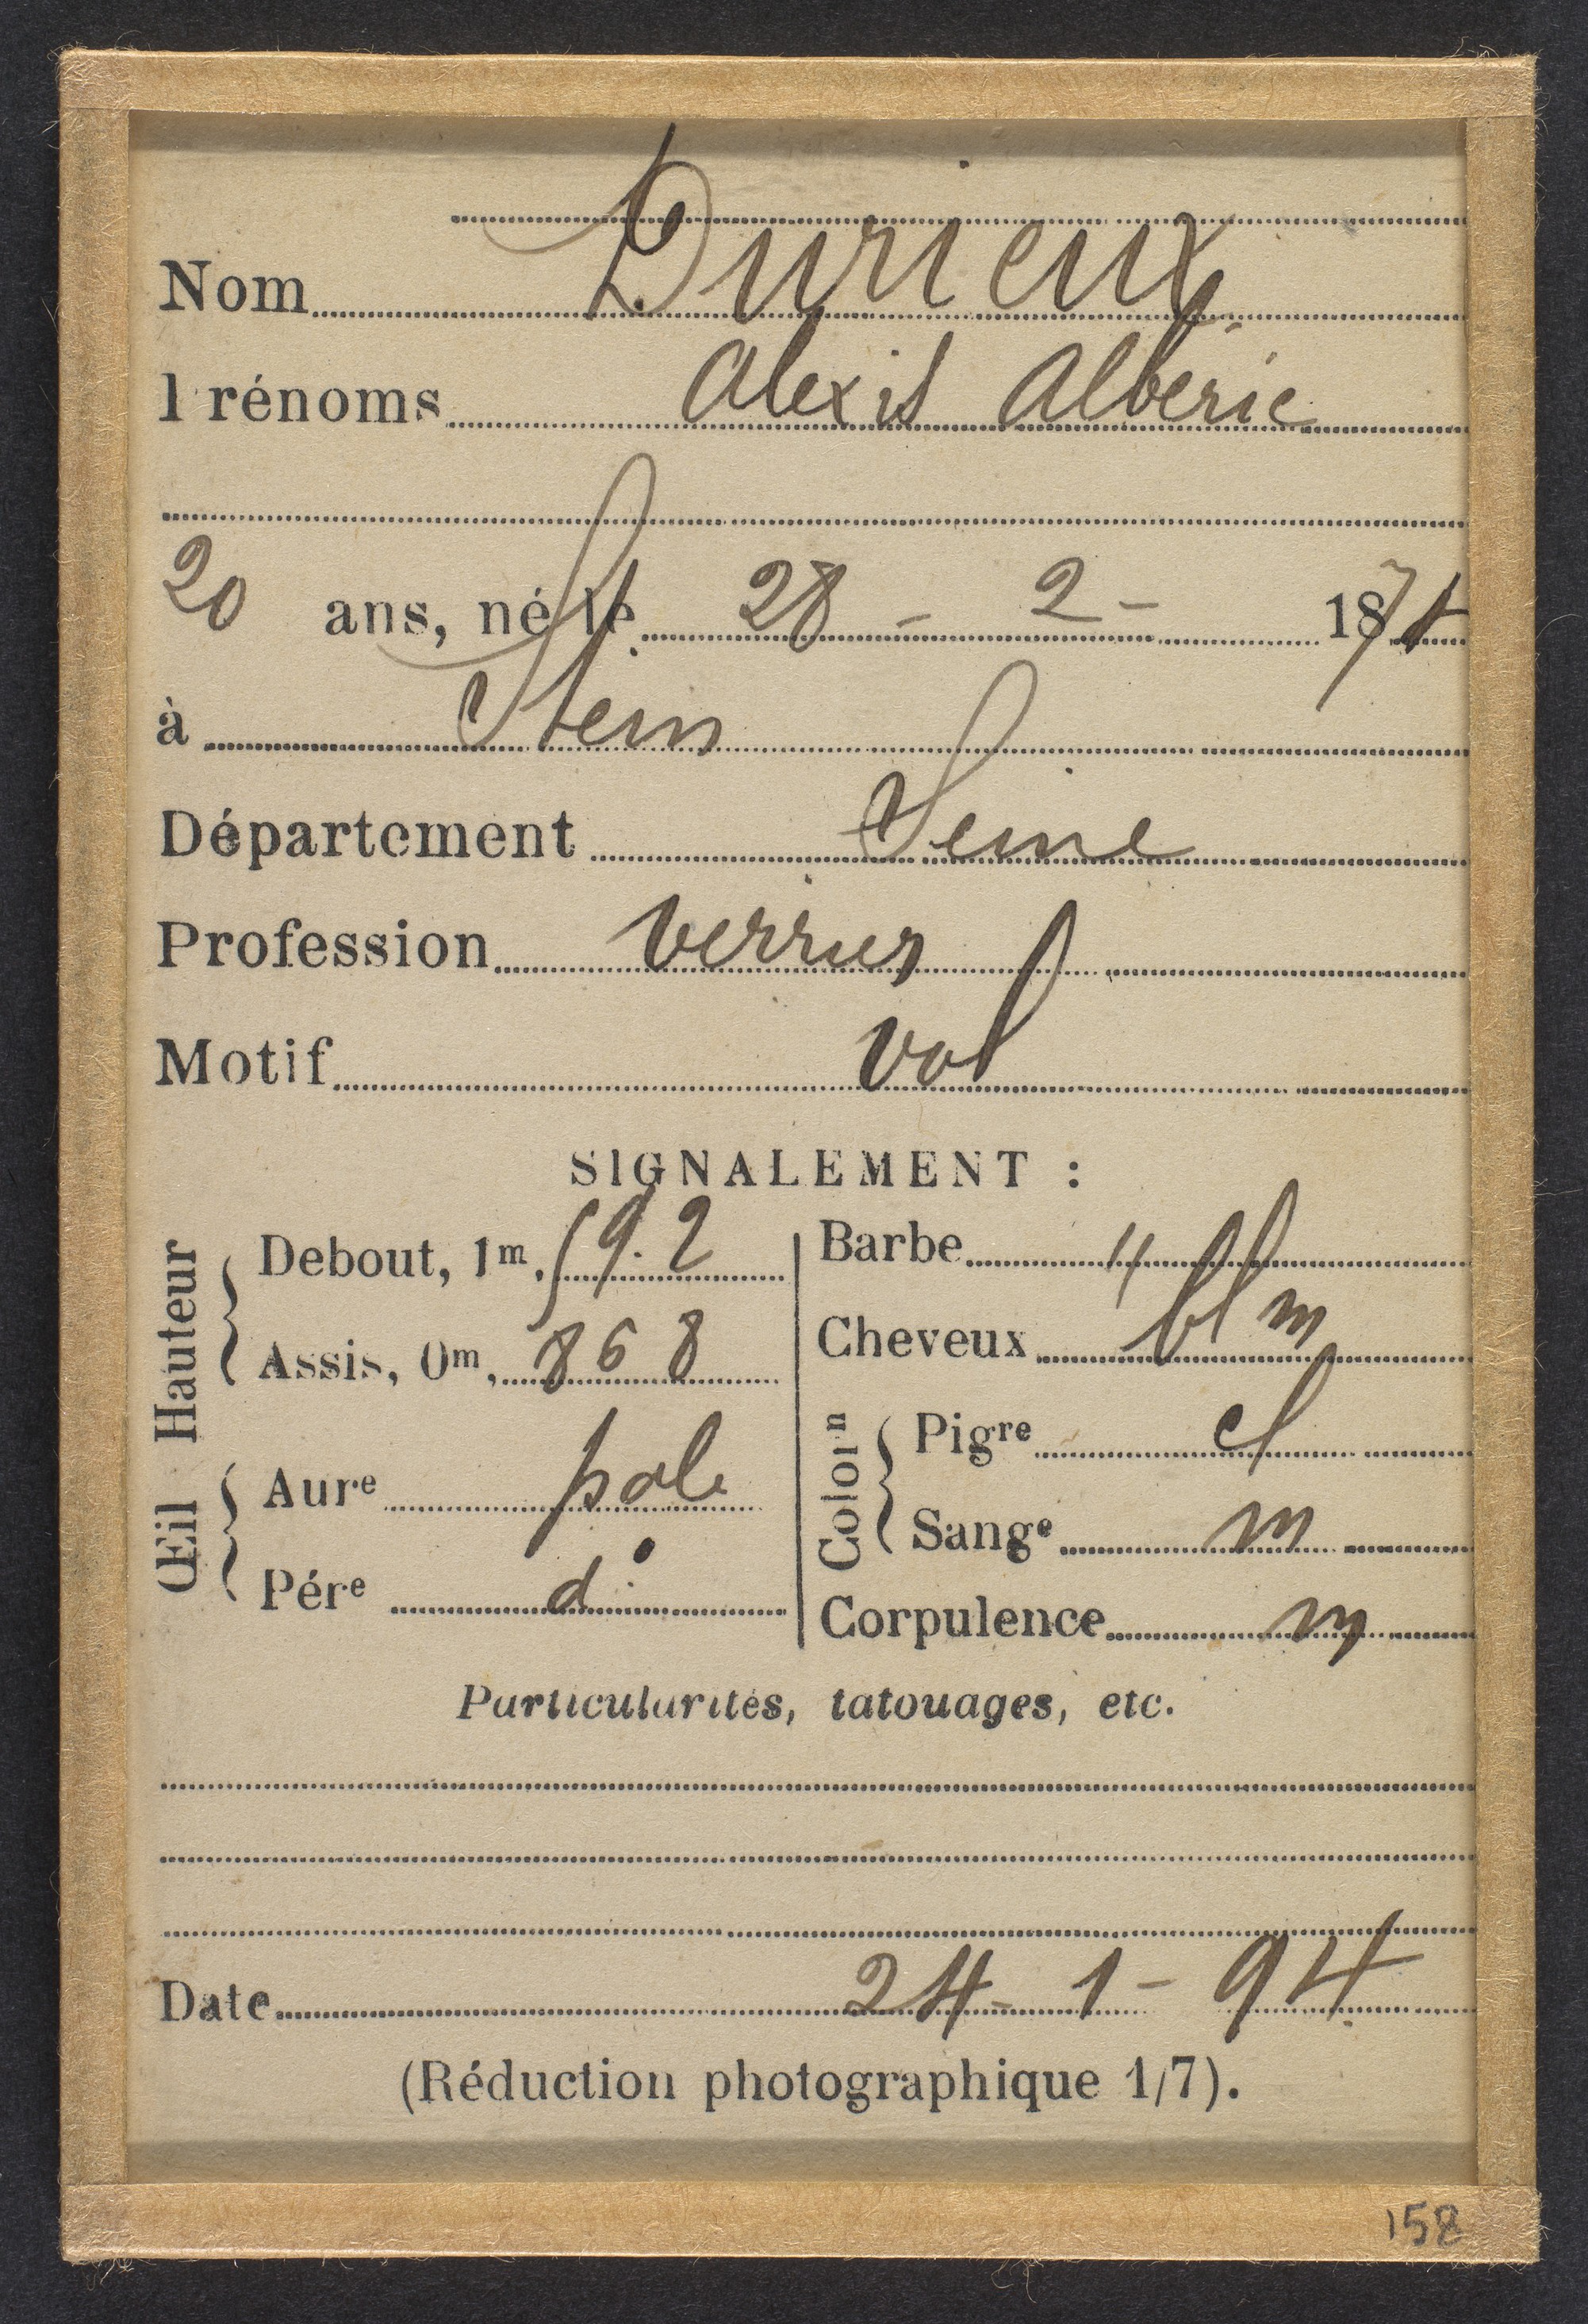 Nom Durieux
Prénoms Alexis Alberic
20 ans, né le 28 - 2 - 1874
à Stein
Département Seine
Profession verrier
Motif vol
SIGNALEMENT :
Hauteur
Debout, 1m, 59.2
Assis, 0m, 868
Œil
Aure pale
Pére d°
Barbe
Cheveux bl m
Colorn
Pigre cl
Sange m
Corpulence m
Particularités, tatouages, etc.
Date 24 - 1 - 94
(Réduction photographique 1/7).
158